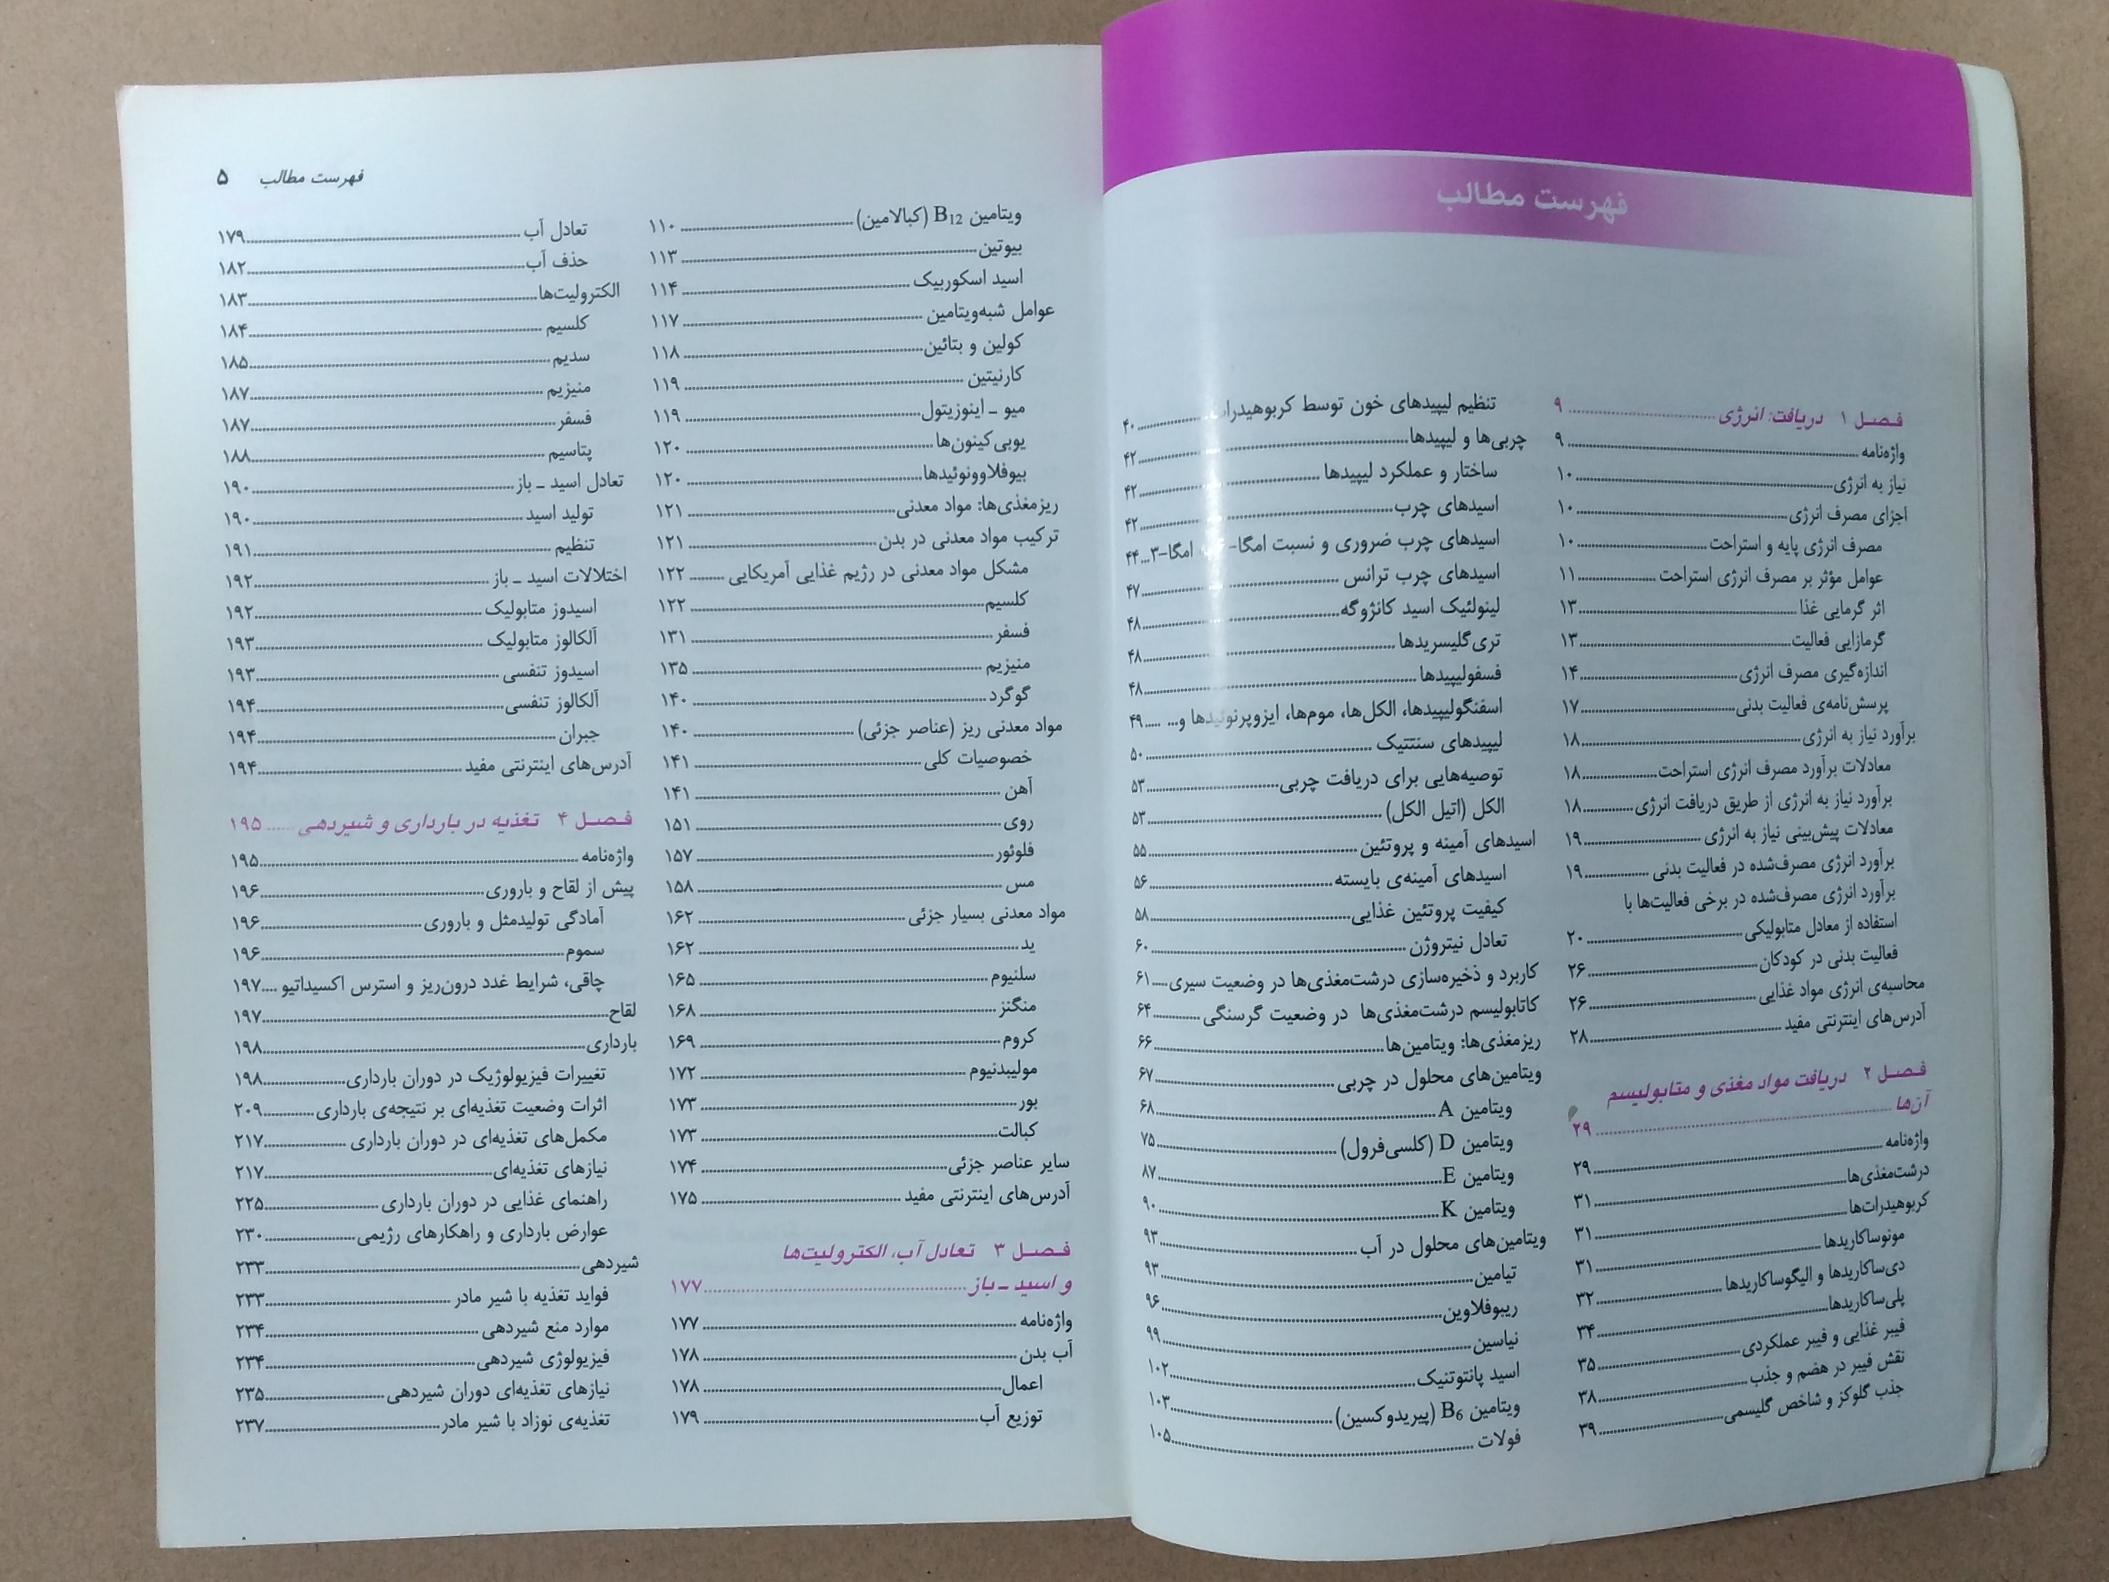 فهرست مطالب
فصل ۱ دریافت: انرژی ........ ۹
واژه‌نامه ........ ۹
نیاز به انرژی ........ ۱۰
اجزای مصرف انرژی ........ ۱۰
مصرف انرژی پایه و استراحت ........ ۱۰
عوامل مؤثر بر مصرف انرژی استراحت ........ ۱۱
اثر گرمایی غذا ........ ۱۳
گرمازایی فعالیت ........ ۱۳
اندازه‌گیری مصرف انرژی ........ ۱۴
پرسش‌نامه‌ی فعالیت بدنی ........ ۱۷
برآورد نیاز به انرژی ........ ۱۸
معادلات برآورد مصرف انرژی استراحت ........ ۱۸
برآورد نیاز به انرژی از طریق دریافت انرژی ........ ۱۸
معادلات پیش‌بینی نیاز به انرژی ........ ۱۹
برآورد انرژی مصرف‌شده در فعالیت بدنی ........ ۱۹
برآورد انرژی مصرف‌شده در برخی فعالیت‌ها با
استفاده از معادل متابولیکی ........ ۲۰
فعالیت بدنی در کودکان ........ ۲۶
محاسبه‌ی انرژی مواد غذایی ........ ۲۶
آدرس‌های اینترنتی مفید ........ ۲۸
فصل ۲ دریافت مواد مغذی و متابولیسم
آن‌ها ........ ۲۹
واژه‌نامه ........ ۲۹
درشت‌مغذی‌ها ........ ۳۱
کربوهیدرات‌ها ........ ۳۱
مونوساکاریدها ........ ۳۱
دی‌ساکاریدها و الیگوساکاریدها ........ ۳۲
پلی‌ساکاریدها ........ ۳۴
فیبر غذایی و فیبر عملکردی ........ ۳۵
نقش فیبر در هضم و جذب ........ ۳۸
جذب گلوکز و شاخص گلیسمی ........ ۳۹
تنظیم لیپیدهای خون توسط کربوهیدرات ........ ۴۰
چربی‌ها و لیپیدها ........ ۴۲
ساختار و عملکرد لیپیدها ........ ۴۲
اسیدهای چرب ........ ۴۲
اسیدهای چرب ضروری و نسبت امگا- امگا-۳ ... ۴۴
اسیدهای چرب ترانس ........ ۴۷
لینولئیک اسید کانژوگه ........ ۴۸
تری‌گلیسریدها ........ ۴۸
فسفولیپیدها ........ ۴۸
اسفنگولیپیدها، الکل‌ها، موم‌ها، ایزوپرنوئیدها و... ..... ۴۹
لیپیدهای سنتتیک ........ ۵۰
توصیه‌هایی برای دریافت چربی ........ ۵۳
الکل (اتیل الکل) ........ ۵۳
اسیدهای آمینه و پروتئین ........ ۵۵
اسیدهای آمینه‌ی بایسته ........ ۵۶
کیفیت پروتئین غذایی ........ ۵۸
تعادل نیتروژن ........ ۶۰
کاربرد و ذخیره‌سازی درشت‌مغذی‌ها در وضعیت سیری ..... ۶۱
کاتابولیسم درشت‌مغذی‌ها در وضعیت گرسنگی ........ ۶۴
ریزمغذی‌ها: ویتامین‌ها ........ ۶۶
ویتامین‌های محلول در چربی ........ ۶۷
ویتامین A ........ ۶۸
ویتامین D (کلسی‌فرول) ........ ۷۵
ویتامین E ........ ۸۷
ویتامین K ........ ۹۰
ویتامین‌های محلول در آب ........ ۹۳
تیامین ........ ۹۳
ریبوفلاوین ........ ۹۶
نیاسین ........ ۹۹
اسید پانتوتنیک ........ ۱۰۲
ویتامین B6 (پیریدوکسین) ........ ۱۰۳
فولات ........ ۱۰۵
فهرست مطالب ۵
ویتامین B12 (کبالامین) ........ ۱۱۰
بیوتین ........ ۱۱۳
اسید اسکوربیک ........ ۱۱۴
عوامل شبه‌ویتامین ........ ۱۱۷
کولین و بتائین ........ ۱۱۸
کارنیتین ........ ۱۱۹
میو ـ اینوزیتول ........ ۱۱۹
یوبی‌کینون‌ها ........ ۱۲۰
بیوفلاوونوئیدها ........ ۱۲۰
ریزمغذی‌ها: مواد معدنی ........ ۱۲۱
ترکیب مواد معدنی در بدن ........ ۱۲۱
مشکل مواد معدنی در رژیم غذایی آمریکایی ........ ۱۲۲
کلسیم ........ ۱۲۲
فسفر ........ ۱۳۱
منیزیم ........ ۱۳۵
گوگرد ........ ۱۴۰
مواد معدنی ریز (عناصر جزئی) ........ ۱۴۰
خصوصیات کلی ........ ۱۴۱
آهن ........ ۱۴۱
روی ........ ۱۵۱
فلوئور ........ ۱۵۷
مس ........ ۱۵۸
مواد معدنی بسیار جزئی ........ ۱۶۲
ید ........ ۱۶۲
سلنیوم ........ ۱۶۵
منگنز ........ ۱۶۸
کروم ........ ۱۶۹
مولیبدنیوم ........ ۱۷۲
بور ........ ۱۷۳
کبالت ........ ۱۷۳
سایر عناصر جزئی ........ ۱۷۴
آدرس‌های اینترنتی مفید ........ ۱۷۵
فصل ۳ تعادل آب، الکترولیت‌ها
و اسید ـ باز ........ ۱۷۷
واژه‌نامه ........ ۱۷۷
آب بدن ........ ۱۷۸
اعمال ........ ۱۷۸
توزیع آب ........ ۱۷۹
تعادل آب ........ ۱۷۹
حذف آب ........ ۱۸۲
الکترولیت‌ها ........ ۱۸۳
کلسیم ........ ۱۸۴
سدیم ........ ۱۸۵
منیزیم ........ ۱۸۷
فسفر ........ ۱۸۷
پتاسیم ........ ۱۸۸
تعادل اسید ـ باز ........ ۱۹۰
تولید اسید ........ ۱۹۰
تنظیم ........ ۱۹۱
اختلالات اسید ـ باز ........ ۱۹۲
اسیدوز متابولیک ........ ۱۹۲
آلکالوز متابولیک ........ ۱۹۳
اسیدوز تنفسی ........ ۱۹۳
آلکالوز تنفسی ........ ۱۹۴
جبران ........ ۱۹۴
آدرس‌های اینترنتی مفید ........ ۱۹۴
فصل ۴ تغذیه در بارداری و شیردهی ...... ۱۹۵
واژه‌نامه ........ ۱۹۵
پیش از لقاح و باروری ........ ۱۹۶
آمادگی تولیدمثل و باروری ........ ۱۹۶
سموم ........ ۱۹۶
چاقی، شرایط غدد درون‌ریز و استرس اکسیداتیو .... ۱۹۷
لقاح ........ ۱۹۷
بارداری ........ ۱۹۸
تغییرات فیزیولوژیک در دوران بارداری ........ ۱۹۸
اثرات وضعیت تغذیه‌ای بر نتیجه‌ی بارداری ........ ۲۰۹
مکمل‌های تغذیه‌ای در دوران بارداری ........ ۲۱۷
نیازهای تغذیه‌ای ........ ۲۱۷
راهنمای غذایی در دوران بارداری ........ ۲۲۵
عوارض بارداری و راهکارهای رژیمی ........ ۲۳۰
شیردهی ........ ۲۳۳
فواید تغذیه با شیر مادر ........ ۲۳۳
موارد منع شیردهی ........ ۲۳۴
فیزیولوژی شیردهی ........ ۲۳۴
نیازهای تغذیه‌ای دوران شیردهی ........ ۲۳۵
تغذیه‌ی نوزاد با شیر مادر ........ ۲۳۷